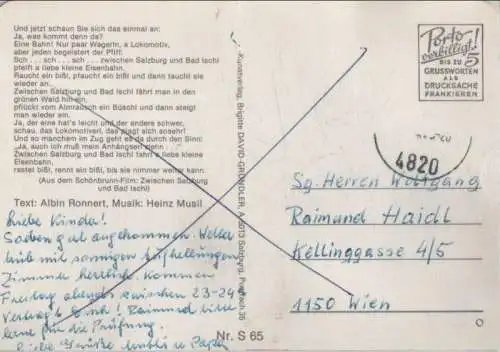 Und jetzt schaun Sie sich das einmal an:
Ja, was kommt denn da?
Eine Bahn! Nur paar Wagerln, a Lokomotiv,
aber jeden begeistert der Pfiff:
Sch . . . sch . . . sch . . . zwischen Salzburg und Bad Ischl
pfeift a liebe kleine Eisenbahn.
Raucht ein bißl, pfaucht ein bißl und dann taucht sie
wieder an.
Zwischen Salzburg und Bad Ischl fährt man in den
grünen Wald hinein,
pflückt vom Almrausch ein Büschl und dann steigt
man wieder ein.
Ja, der eine hat's leicht und der andere schwer,
schau, das Lokomotiverl, das plagt sich sosehr!
Und so manchem im Zug geht es da durch den Sinn:
„Ja, auch ich muß mein Anhängserl ziehn . . ."
Zwischen Salzburg und Bad Ischl fahrt a liebe kleine
Eisenbahn,
rastet bißl, rennt ein bißl, bis sie nimmer weiter kann.
(Aus dem Schönbrunn-Film: Zwischen Salzburg
und Bad Ischl)
Text: Albin Ronnert, Musik: Heinz Musil
Liebe Kinder!
Soeben gut angekommen. Wetter
trüb mit sonnigen Aufhellungen
Zimmer herrlich. Kommen
Freitag abends zwischen 23-24
Raimund bitte
lerne für die Prüfung.
Grüße Mutti u Papa
Nr. S 65
Kunstverlag, Brigitte DAVID-GRÜNDLER, A-5013 Salzburg, Postfach 36
Porto
verbilligt!
BIS ZU
5
GRUSSWORTEN
ALS
DRUCKSACHE
FRANKIEREN
4820
Sg. Herren Wolfgang
Raimund Haidl
Kellinggasse 4/5
1150 Wien